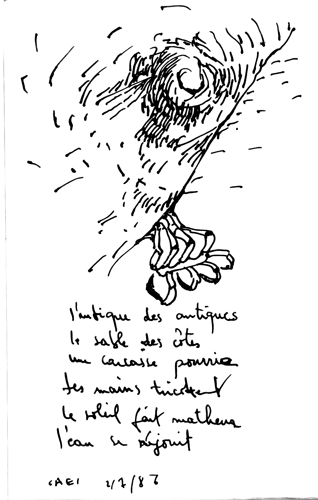 l'antique des antiques
le sable des côtes
une carcasse pourrie
tes mains tricotent
le soleil fait malheur
l'eau se réjouit
CAEI 2/7/83